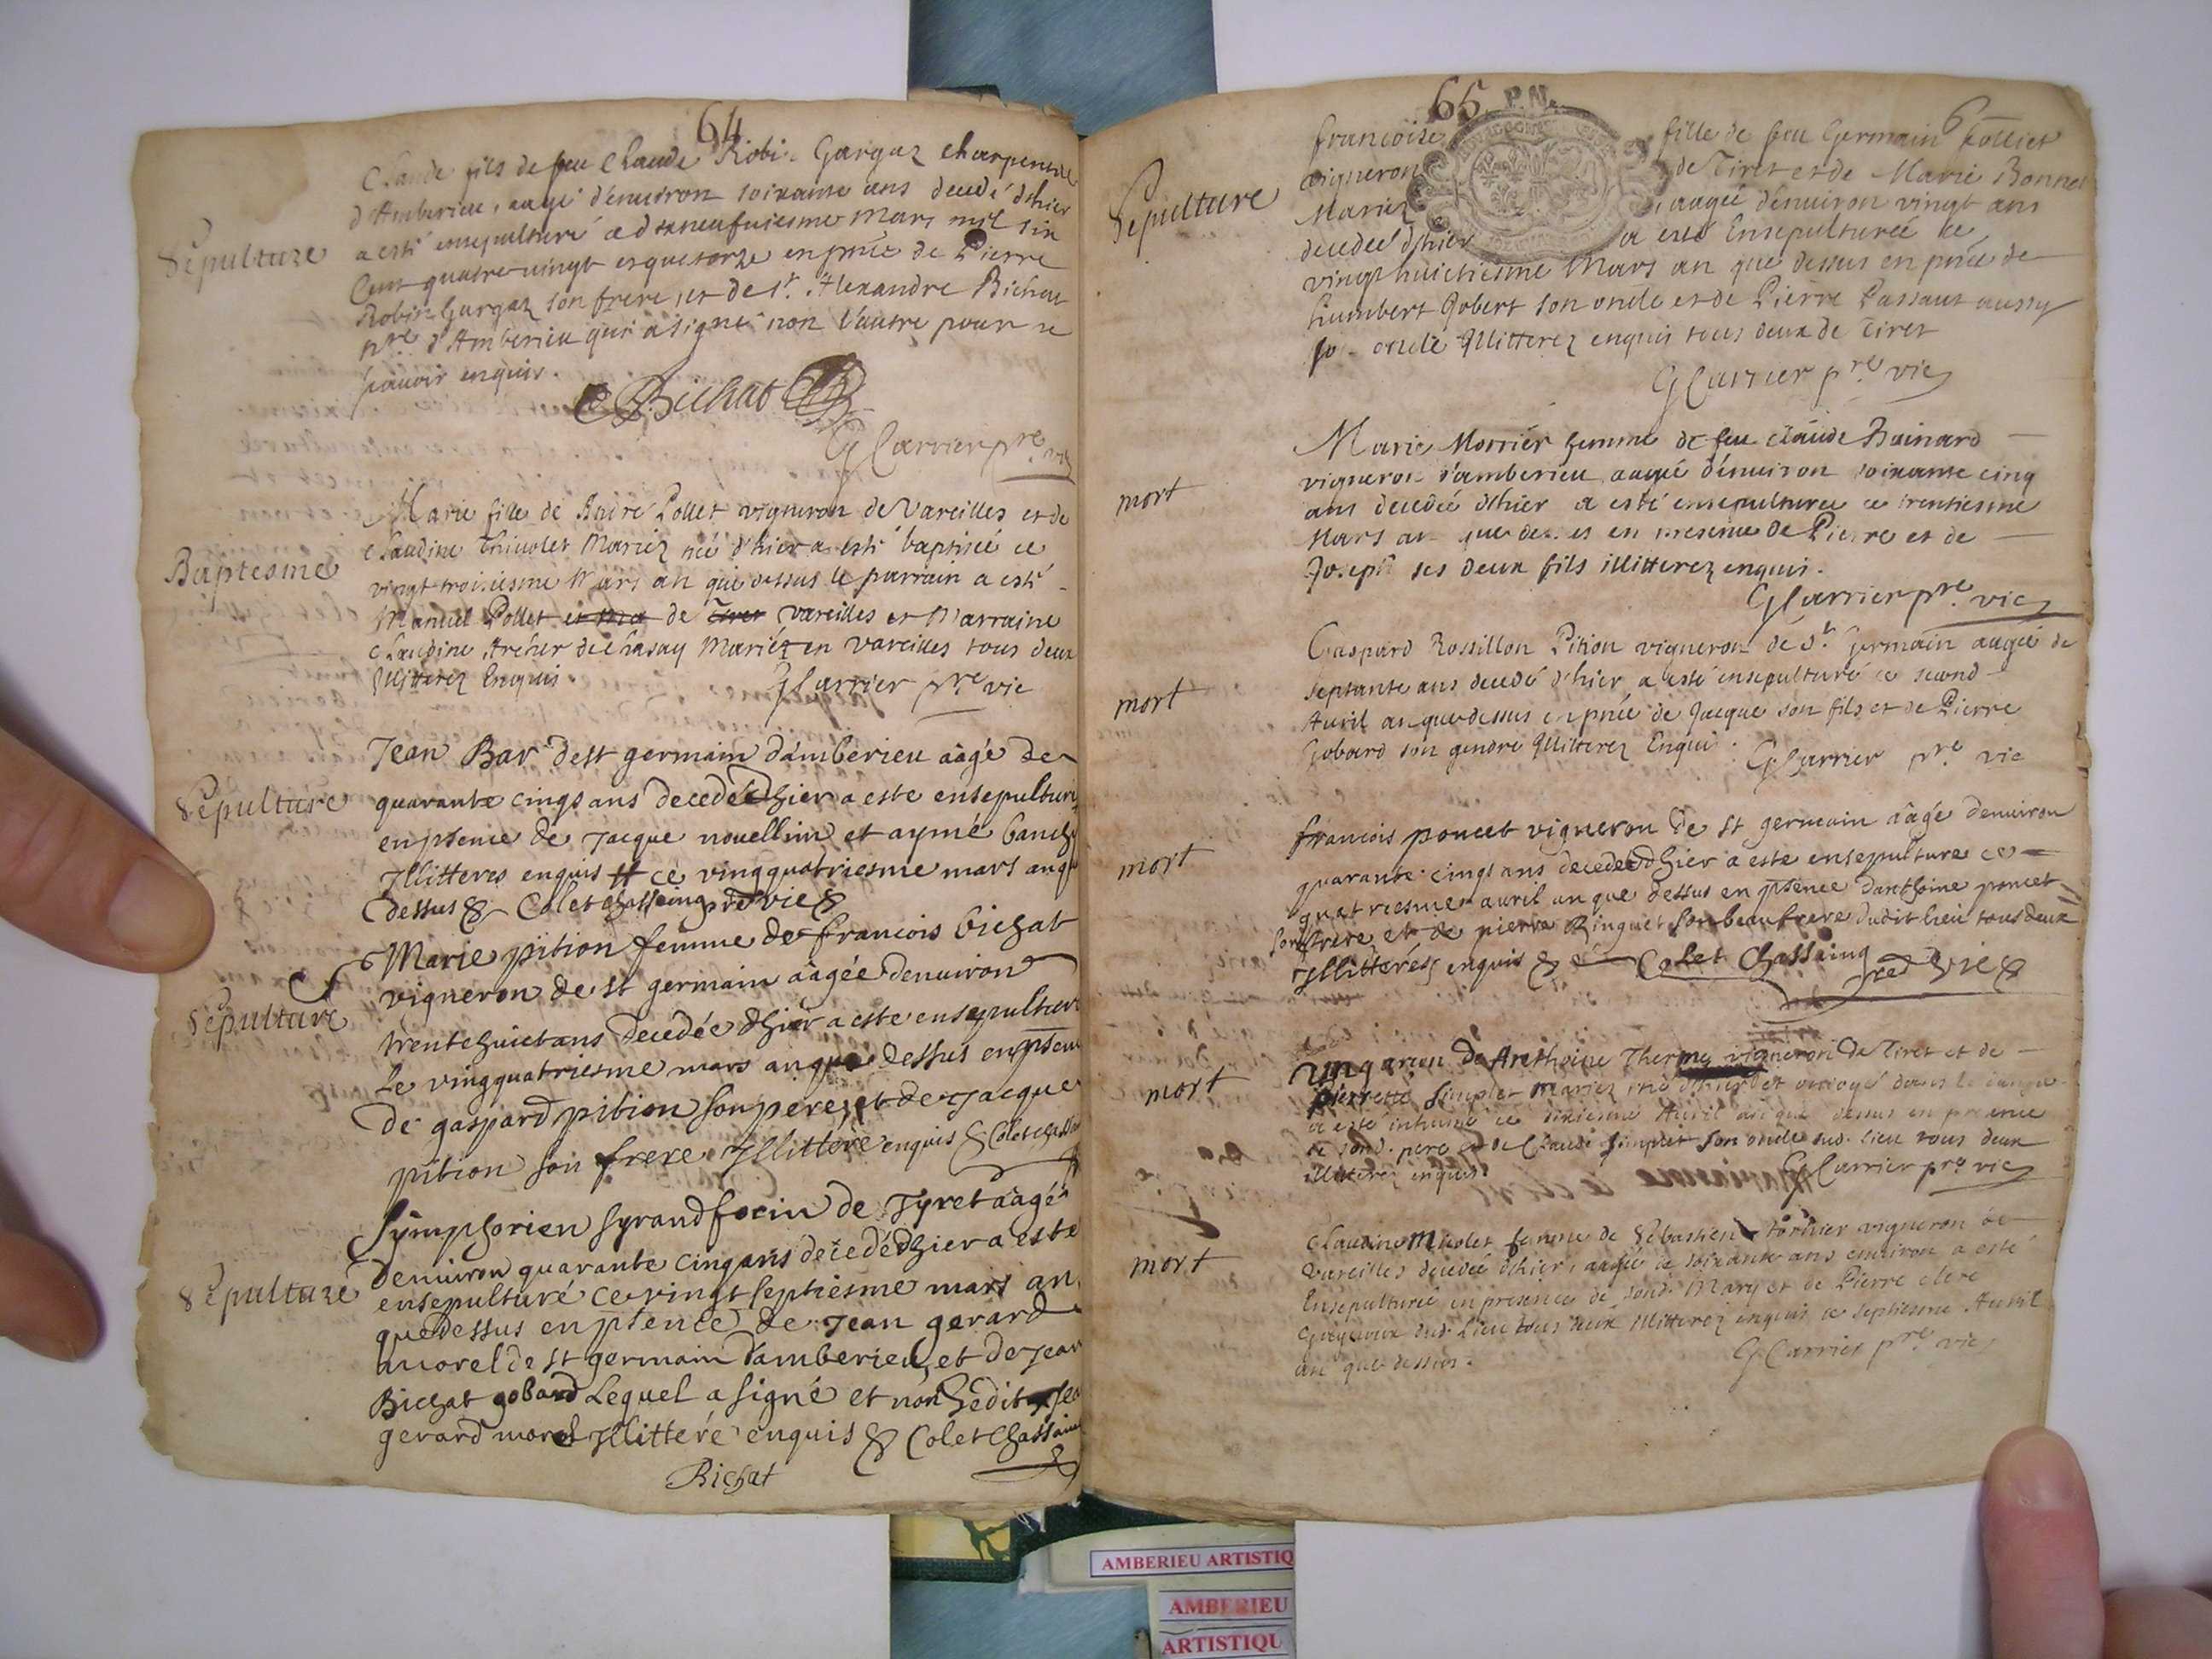 64
Claude fils de feu Claude Robin Gargaz charpentier
d'Amberieu, aagé d'environ soixante ans decedé d'hier
Sepulture
a esté ensepulturé ce dixneufuiesme Mars mil six
Cent quatre vingt et quatorze en pnce de Pierre
Robin Gargaz son frere, et de Sr. Alexandre Bichat
nre d'Amberieu qui a signé non l'autre pour ne
sçavoir enquis.
Bichat
G Carrier pre vic
Marie fille de Pollet vigneron de Vareilles et de
Claudine Thivolet Mariez née d'hier a esté baptisée ce
Baptesme
vingt troisiesme Mars an que dessus le parrain a esté
Manuel Pollet et Ma de Tiret vareilles et Marraine
Claudine Archer de Chasay Mariéz en Vareilles tous deux
Illitterez Enquis
G Carrier pre vic
Jean Bar dest germain d'amberieu aâgé de
Sepulture
quarante cinqs ans decedé dhier a este ensepulturé
en psence de Jacque nouellin et aymé
Illitteres enquis # ce vingquatriesme mars an que
dessus & Colet Chassaing pre vic &
Marie pition femme de francois bichat
vigneron de st germain aâgée denuiron
Sepulture
trentehuict ans decedée dhier a este ensepulturé
Le vingquatriesme mars an que dessus en psence
De gaspard pition son pere, et de Jacque
pition son frere Illittére enquis & Colet Chassaing
Symphorien syrand focin de Tyret aâgé
Denuiron quarante cinq ans decedé Dhier a este
Sepulture
ensepulturé ce vingt septiesme mars an
que dessus en psence de Jean gerard
morel de st germain d'amberieu, et de Jean
Bichat gobard Lequel a signé et nón Ledit Jean
gerard morel Illitteré enquis & Colet Chassaing
Bichat
65
P.N.
6
francoise fille de feu Germain Folliet
vigneron de Tiret et de Marie Bonnet
Sepulture
Mariez, aagée d'enuiron vingt ans
decedée d'hier a esté Ensepulturée le
vingt huictiesme Mars an que dessus en pnce de
humbert Gobert son oncle et de Pierre Passant aussy
son oncle Illitterez enquis tous deux de Tiret
G Carrier pre vic
Marie Morrier femme de feu claude Bainard
vigneron d'amberieu aagée d'enuiron soixante cinq
mort
ans decedée d'hier a esté ensepulturée ce trentiesme
Mars an que dessus en presence de Pierre et de
Joseph ses deux fils illitterez enquis.
G Carrier pre vic
Gaspard Rossillon Pition vigneron de St. Germain aagée de
mort
septante ans decedé d'hier a esté ensepulturé ce second
Auril an que dessus en pnce de Jacque son fils et de Pierre
Gobard son gendre Illitterez Enquis.
G Carrier pre vic
francois poncet vigneron de st germain aâgé denuiron
mort
quarante cinqs ans decedé dhier a este ensepulture ce
quatriesme auril an que dessus en psence danthoine poncet
son frere et de pierre Ringuet son beaufrere dudit lieu tous deux
Illittérés enquis & Colet Chassaing
pre vic &
un garcon de Anthoine Therme vigneron de Tiret et de
mort
pierrette simplet Mariez né d'hier et ondoyé dans le danger
a esté inhumé ce sixiesme Auril an que dessus en presence
de sond. pere et de Claude simplet son oncle dud. lieu tous deux
illitterez enquis.
G Carrier pre vic
Claudine Micolet femme de Sebastien Tornier vigneron de
mort
Vareilles decedée d'hier, aagée de soixante ans enuiron a esté
Ensepulturée en presence de sond. Mary et de Pierre clerc
dud. Lieu tous deux Illitterez enquis ce septiesme Auril
an que dessus.
G Carrier pre vic
AMBERIEU ARTISTIQ
AMBERIEU
ARTISTIQU